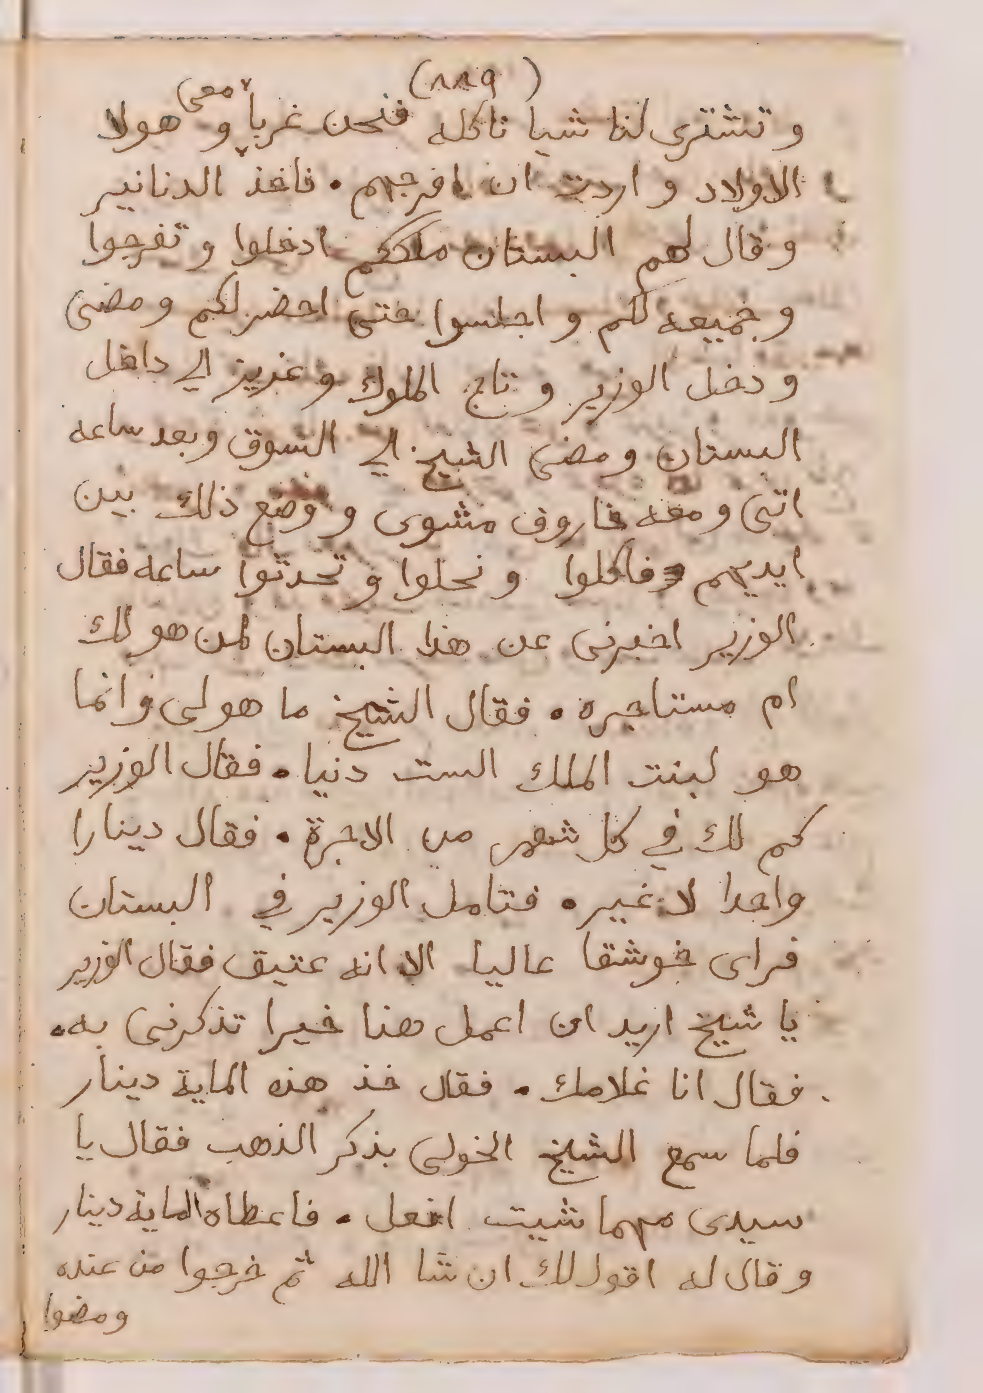 (٨٨٩)
وتشترى لنا شيا ناكله فنحن غربا ومعى هولا
الاولاد واردت ان افرجهم • فاخذ الدنانير
وقال لهم البستان ملككم ادخلوا وتفرجوا
وجميعه لكم واجلسوا حتى احضر لكم ومضى
ودخل الوزير وتاج الملوك وعزيز الى داخل
البستان ومضى الشيخ الى السوق وبعد ساعه
اتى ومعه خاروف مشوى ووضع ذلك بين
ايديهم فاكلوا وتحدثوا ساعه فقال
الوزير اخبرنى عن هذا البستان لمن هو لك
ام مستاجره • فقال الشيخ ما هو لى وانما
هو لبنت الملك الست دنيا • فقال الوزير
كم لك في كل شهر من الاجرة • فقال دينارا
واحدا لا غير • فتامل الوزير في البستان
فراى خوشقا عاليا الا انه عتيق فقال الوزير
يا شيخ اريد ان اعمل هنا خيرا تذكرنى به •
فقال انا غلامك • فقال خذ هذه الماية دينار
فلما سمع الشيخ الخولى بذكر الذهب فقال يا
سيدى مهما شيت افعل • فاعطاه الماية دينار
وقال له اقول لك ان شا الله ثم خرجوا من عنده
ومضوا